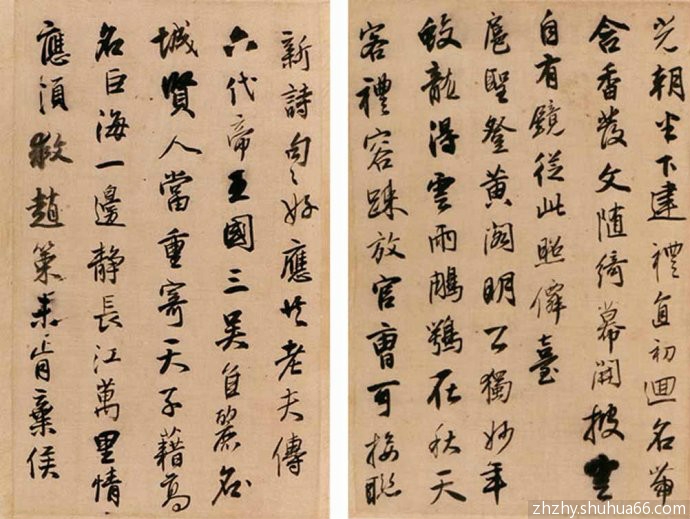 光朝半下建禮直初迴名帶
含香發文隨綺幕開披雲
自有鏡從此照僊臺
扈聖登黃閣明公獨妙年
蛟龍得雲雨鵰鶚在秋天
客禮容踈放官曹可接聯
新詩句〻好應老夫傳
六代帝王國三吳自麗名
城賢人當重寄天子藉高
名巨海一邊靜長江萬里情
應須救趙策未肯棄侯
zhzhy.shuhua66.com